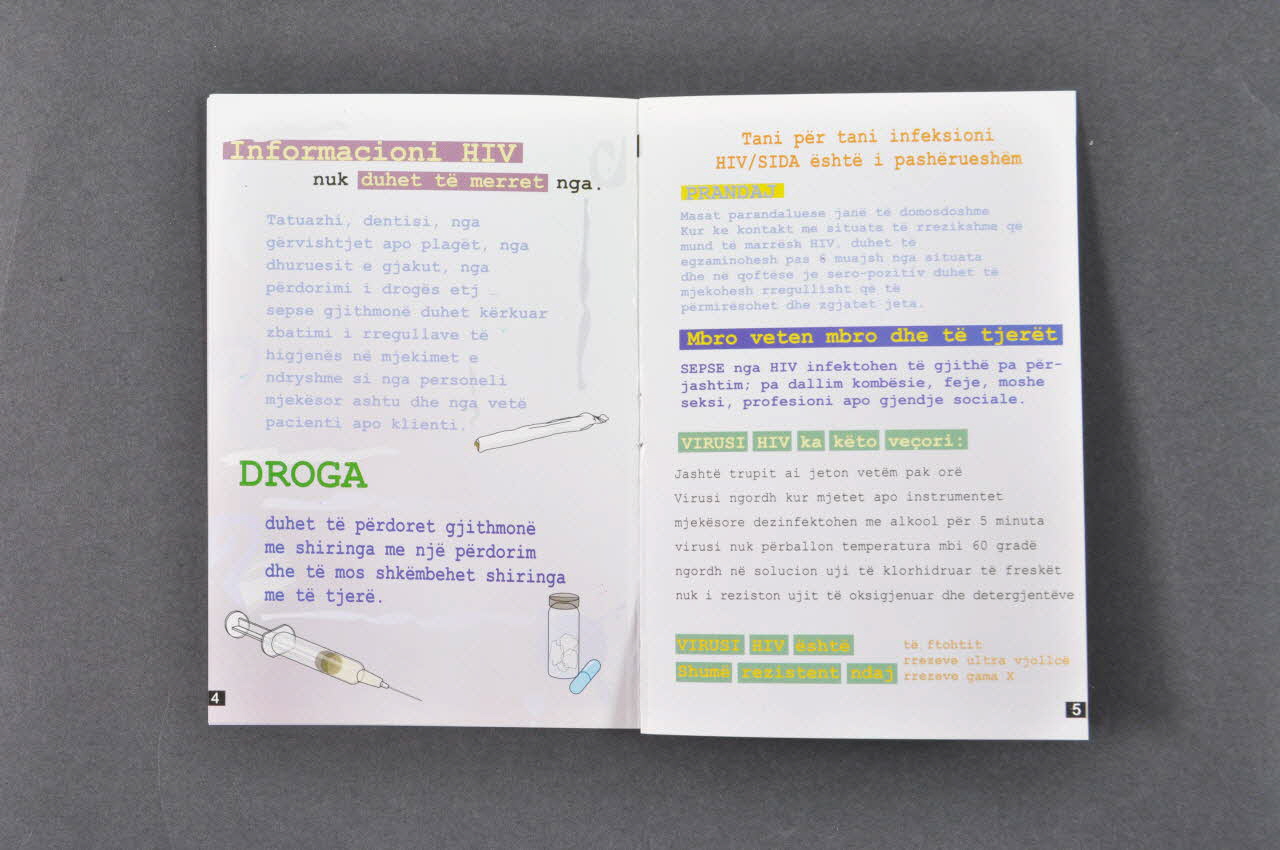 Informacioni HIV
nuk duhet të merret nga.
Tatuazhi, dentisi, nga
gërvishtjet apo plagët, nga
dhuruesit e gjakut, nga
përdorimi i drogës etj
sepse gjithmonë duhet kërkuar
zbatimi i rregullave të
higjenës në mjekimet e
ndryshme si nga personeli
mjekësor ashtu dhe nga vetë
pacienti apo klienti.
DROGA
duhet të përdoret gjithmonë
me shiringa me një përdorim
dhe të mos shkëmbehet shiringa
me të tjerë.
4
Tani për tani infeksioni
HIV/SIDA është i pashërueshëm
PRANDAJ
Masat parandaluese janë të domosdoshme
Kur ke kontakt me situata të rrezikshme që
mund të marrësh HIV. duhet të
egzaminohesh pas 6 muajsh nga situata
dhe në qoftëse je sero-pozitiv duhet të
mjekohesh rregullisht që të
përmirësohet dhe zgjatet jeta.
Mbro veten mbro dhe të tjerët
SEPSE nga HIV infektohen të gjithë pa për-
jashtim; pa dallim kombësie, feje, moshe
seksi, profesioni apo gjendje sociale.
VIRUSI HIV ka këto veçori:
Jashtë trupit ai jeton vetëm pak orë
Virusi ngordh kur mjetet apo instrumentet
mjekësore dezinfektohen me alkool për 5 minuta
virusi nuk përballon temperatura mbi 60 gradë
ngordh në solucion uji të klorhidruar të freskët
nuk i reziston ujit të oksigjenuar dhe detergjentëve
VIRUSI HIV është
Shumë rezistent ndaj
të ftohtit
rrezeve ultra vjollcë
rrezeve gama X
5